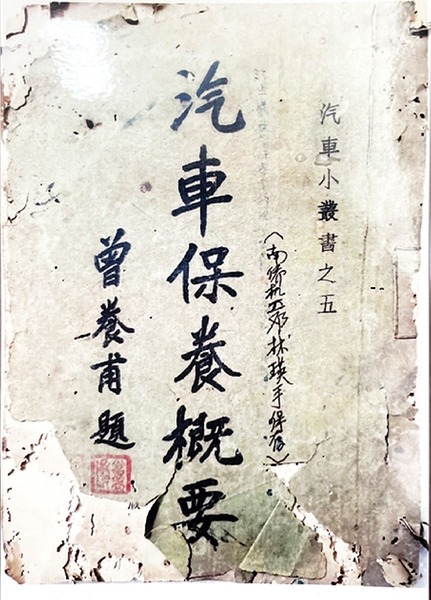 汽車小叢書之五
(南侨机工邓林瑛手保存)
汽車保養概要
曾養甫題